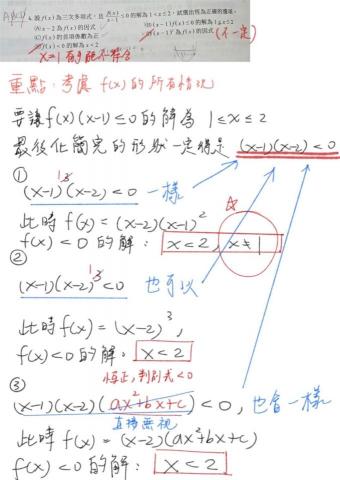 4. 設f(x)為三次多項式，且 f(x)/(x-1) < 0 的解為 1<x≤2，試選出恆為正確的選項。
(A) x-2 為 f(x) 的因式 (B) (x-1)f(x)≤0 的解為 1≤x≤2
(C) f(x) 的首項係數為正 (D) (x-1)² 為 f(x) 的因式 (不一定)
(E) f(x)<0 的解為 x<2
重點:考慮 f(x)的所有情況
要讓f(x)(x-1)≤0的解為 1≤x≤2
最後化簡完的形狀一定得是 (x-1)(x-2)<0
①
(x-1)³(x-2)<0 一樣
此時 f(x)=(x-2)(x-1)²
f(x)<0的解: x<2, x≠1
②
(x-1)(x-2)³<0 也可以
此時f(x)=(x-2)³,
f(x)<0的解: x<2
恒正,判別式<0
③
(x-1)(x-2)(ax²+bx+c)<0,也會一樣
直接無視
此時 f(x)=(x-2)(ax²+bx+c)
f(x)<0的解: x<2